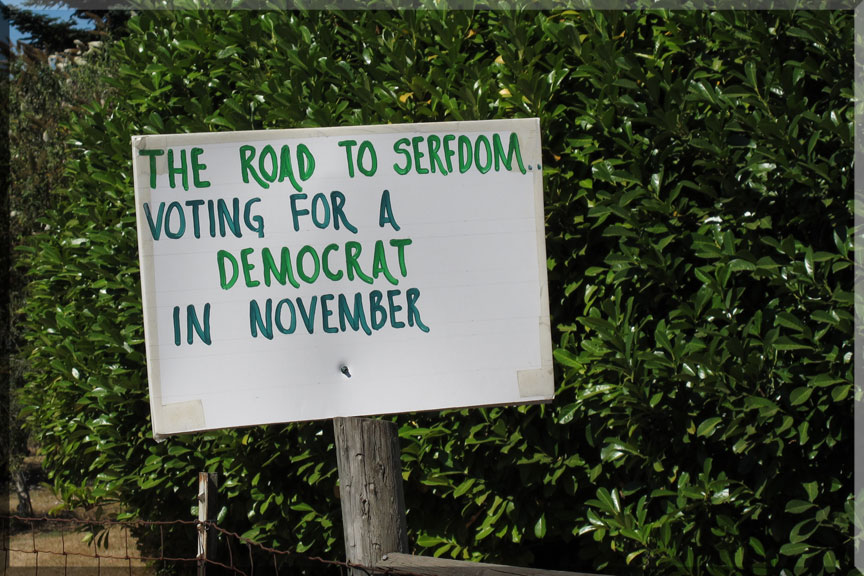 THE ROAD TO SERFDOM..
VOTING FOR A
DEMOCRAT
IN NOVEMBER